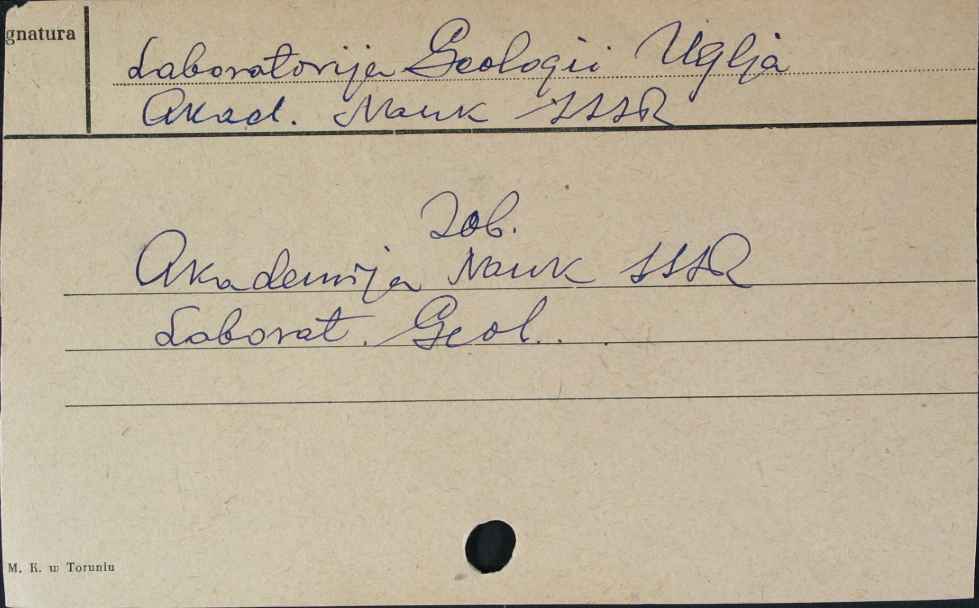 gnatura
Laboratorija Geologii Uglja
Akad. Nauk SSSR
Zob.
Akademija Nauk SSSR
Laborat. Geol...
M. R. w Toruniu